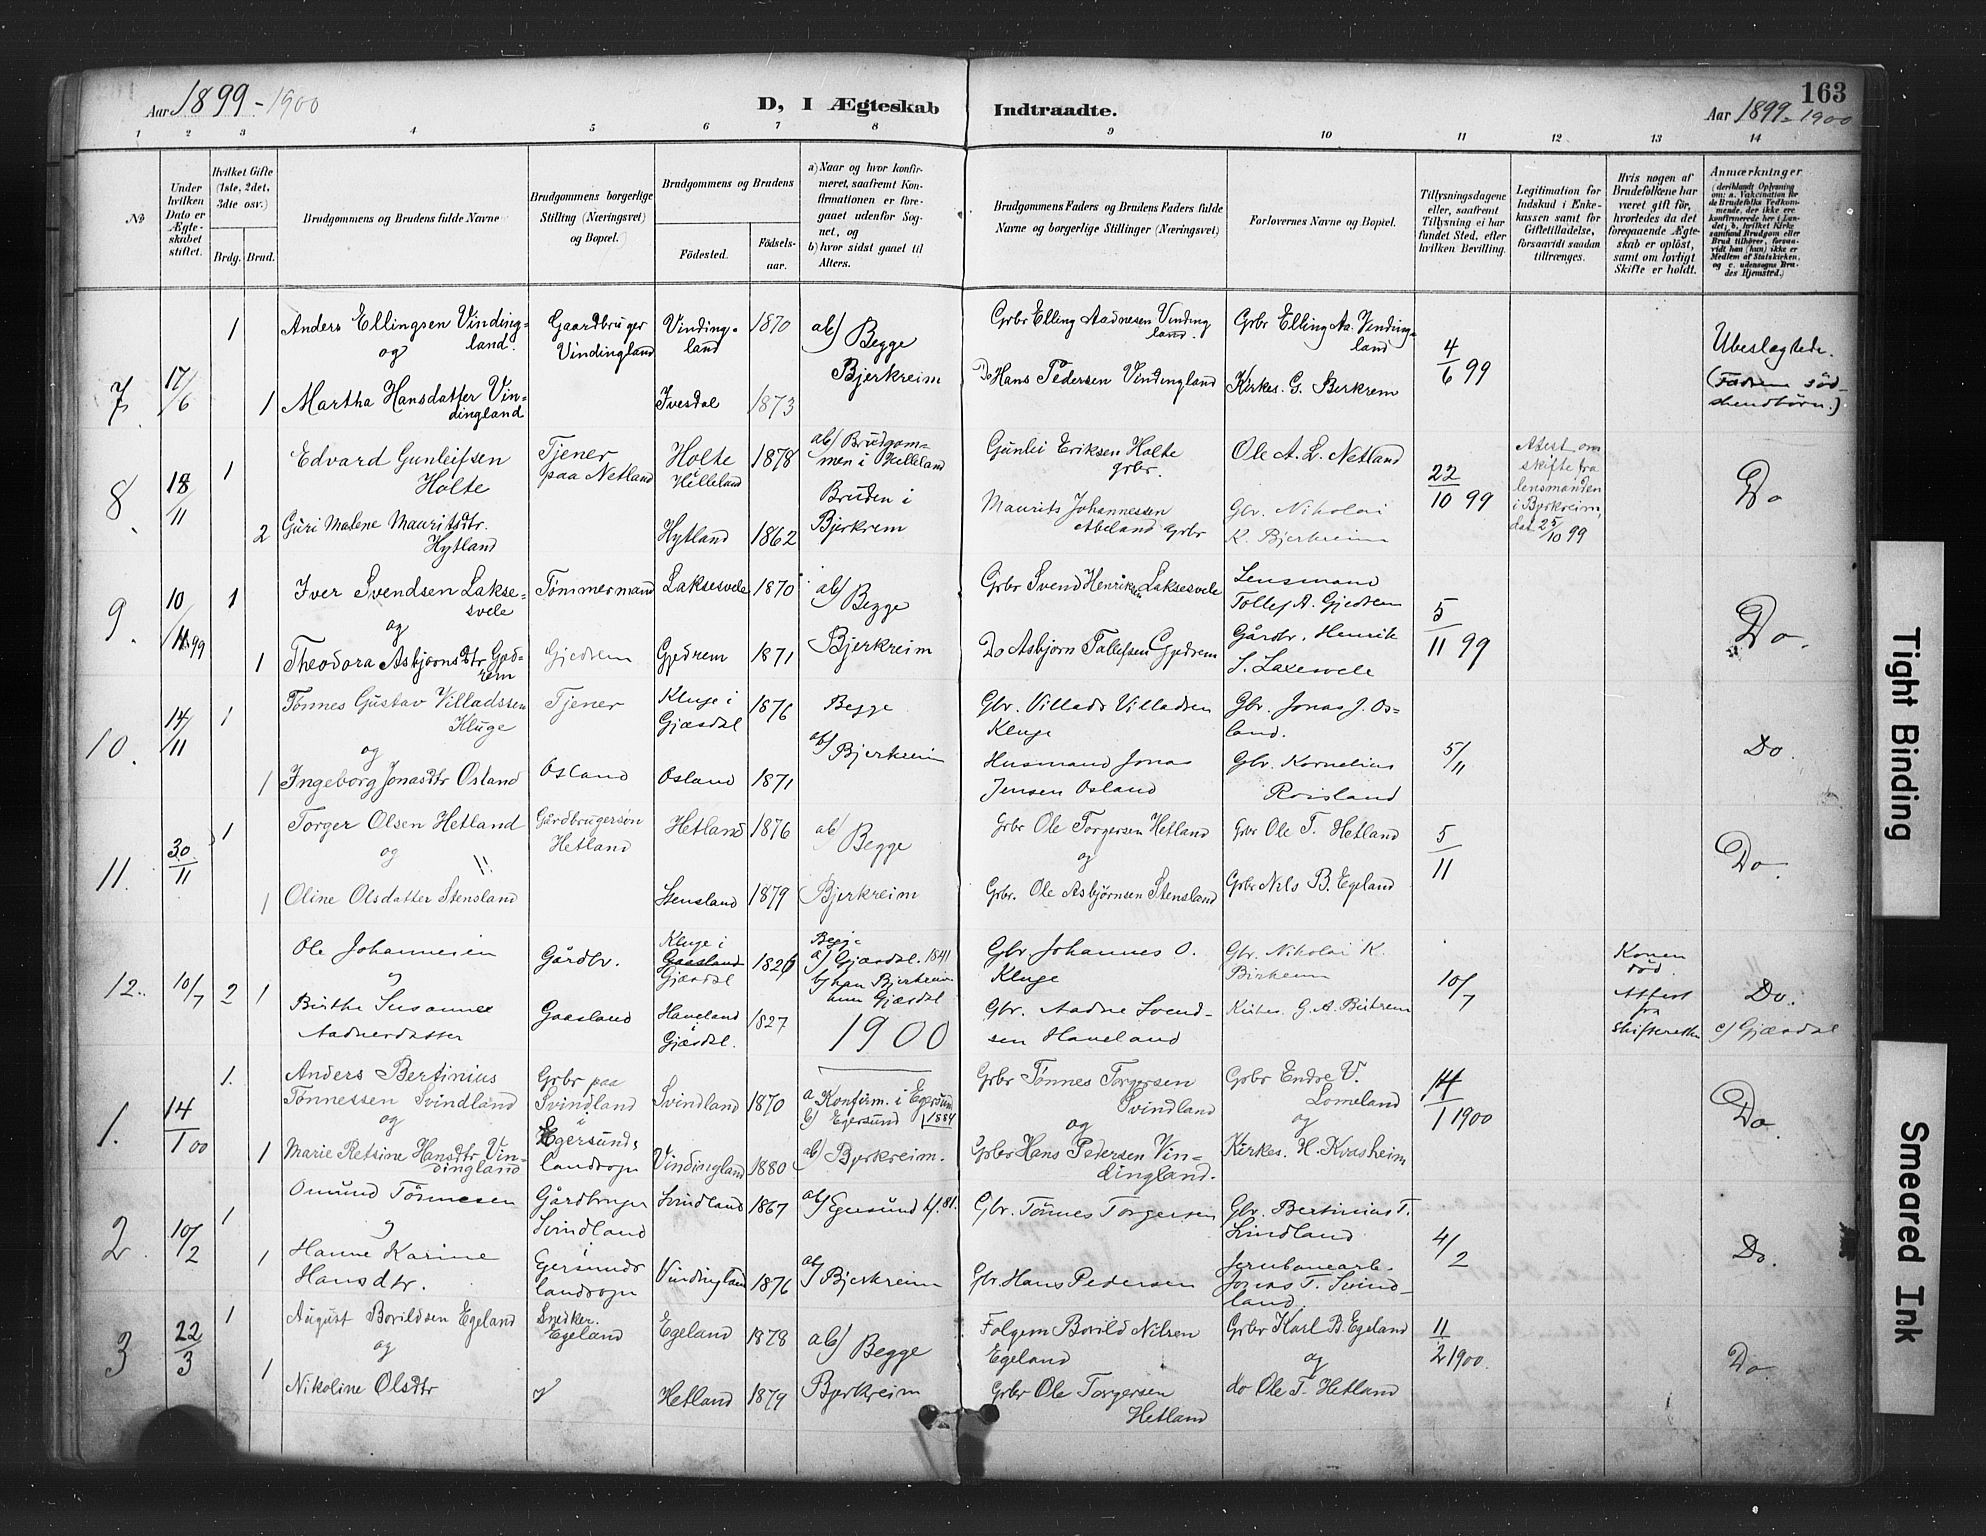 Aar 1899-1900
D, I Ægteskab
Indtraadte.
163
Aar 1899-1900
1 2 3 4 5 6 7 8 9 10 11 12 13 14
No
Under hvilken Dato er Ægteskabet stiftet.
Hvilket Gifte (1ste, 2det, 3die osv.)
Brdg. Brud.
Brudgommens og Brudens fulde Navne
Brudgommens borgerlige Stilling (Næringsvei) og Bopæl.
Brudgommens og Brudens
Fødested.
Fødselsaar.
a) Naar og hvor konfirmeret, saafremt Konfirmationen er foregaaet udenfor Sognet, og
b) hvor sidst gaaet til Alters.
Brudgommens Faders og Brudens Faders fulde Navne og borgerlige Stillinger (Næringsvei)
Forlovernes Navne og Bopæl.
Tillysningsdagene eller, saafremt Tillysning ei har fundet Sted, efter hvilken Bevilling.
Legitimation for Indskud i Enkekassen samt for Giftetilladelse, forsaavidt saadan tiltrænges.
Hvis nogen af Brudefolkene har været gift før, hvorledes da det foregaaende Ægteskab er opløst, samt om lovligt Skifte er holdt.
Anmærkninger
7. 17/6
1
Anders Ellingsen Vindingland.
og
1 Martha Hansdatter Vindingland
Gaardbruger
Vindingland
Vindingland 1870
Ivesdal 1873
ab) Begge
Bjerkreim
Grbr Elling Aadnesen Vindingland
Do Hans Pedersen Vindingland
Grbr. Elling Aa. Vindingland
Kirkes. G. Birkrem
4/6 99
Ubeslægtede.
8. 18/11
1
Edvard Gunleifsen
Holte
2 Guri Malene Mauritsdtr.
Hytland
Tjener
paa Netland
Holte
Helleland 1878
Hytland 1862
ab) Brudgommen i Helleland
Bruden i
Bjerkrem
Gunlei Eriksen Holte
grbr.
Maurits Johannessen
Abeland Grbr
Ole A. L. Netland
Gbr. Nikolai
K. Bjerkreim
22/10 99
Atest om
skifte fra
lensmanden
i Bjerkreim,
dat 25/10 99
Do
9. 10/11 99
1
Iver Svendsen Laksesvele
og
1 Theodora Asbjørnsdtr Gjedrem
Tømmermand
Gjedrem
Laksesvele 1870
Gjedrem 1871
ab) Begge
Bjerkreim
Grbr Svend Henriksen Laksesvele
Do Asbjørn Tollefsen Gjedrem
Lensmand
Tollef A. Gjedrem
Gårdbr. Henrik
S. Laxesvele
5/11 99
Do.
10. 14/11
1
Tønnes Gustav Villadssen
Kluge
og
1 Ingeborg Jonasdtr Osland
Tjener
Osland
Kluge i
Gjæsdal 1876
Osland 1871
Begge
ab) Bjerkreim
Gbr. Villads Villadsen
Kluge
Husmand Jonas
Jensen Osland
Gbr. Jonas J. Osland.
Gbr. Kornelius
Røisland
5/11
Do.
11. 30/11
1
Torger Olsen Hetland
og
1 Oline Olsdatter Stensland
Gårdbrugersøn
Hetland
Hetland 1876
Stensland 1879
ab) Begge
Bjerkreim
Grbr Ole Torgersen Hetland
og
Grbr. Ole Asbjørnsen Stensland
Grbr Ole T. Hetland
Grbr Nils B. Egeland
5/11
Do.
12. 10/7
2 1
Ole Johannesen
Birthe Susanne
Aadnesdatter
Gårdbr.
Gaasland
Kluge i
Gaasland
Gjæsdal
Haveland
i
Gjæsdal. 1827
Begge
a) Gjæsdal. 1841
b) han Bjerkreim
hun Gjæsdal
Gbr. Johannes O.
Kluge
Gbr. Aadne Svendsen Haveland
Gbr. Nikolai K.
Birkrem
Kirkes. G. A. Birkrem
10/7
Konen
død.
Attest
fra
skifteretten
Do.
c) Gjæsdal
1900
1. 14/1 00
1.
Anders Bertinius
Tønnessen Svindland
og
1 Marie Retsine Hansdtr Vindingland
Grbr paa
Svindland
i
Egersunds
landsogn
Svindland 1870
Vindingland 1880
a Konfirm. i Egersund
b) Egersund 1884
ab) Bjerkreim.
Grbr Tønnes Torgersen
Svindland
og
Grbr Hans Pedersen Vindingland.
Grbr Endre V.
Lomeland
og
Kirkes. H. Kvasheim
14/1 1900
Do.
2. 10/2
1
Omund Tønnesen
1 Hanne Karine
Hansdtr.
Gårdbruger
Svindland
i
Egersunds
landsogn
Svindland 1867
Vindingland 1876
ab) Egersund 81.
ab) Bjerkreim
Gbr. Tønnes Torgersen
Gbr Hans Pedersen
Gbr. Bertinius T.
Svindland
Jernbanearb.
Jonas T. Svindland.
4/2
Do.
3 22/3
1
August Borildsen Egeland
og
1 Nikoline Olsdtr
Snedker.
Egeland
Egeland 1878
Hetland 1879
ab) Begge
Bjerkreim
Folgem Borild Nilsen
Egeland
Grbr Ole Torgersen
Hetland
Grbr Karl B. Egeland
og
do Ole T. Hetland
11/2 1900.
Do.
Tight Binding
Smeared Ink